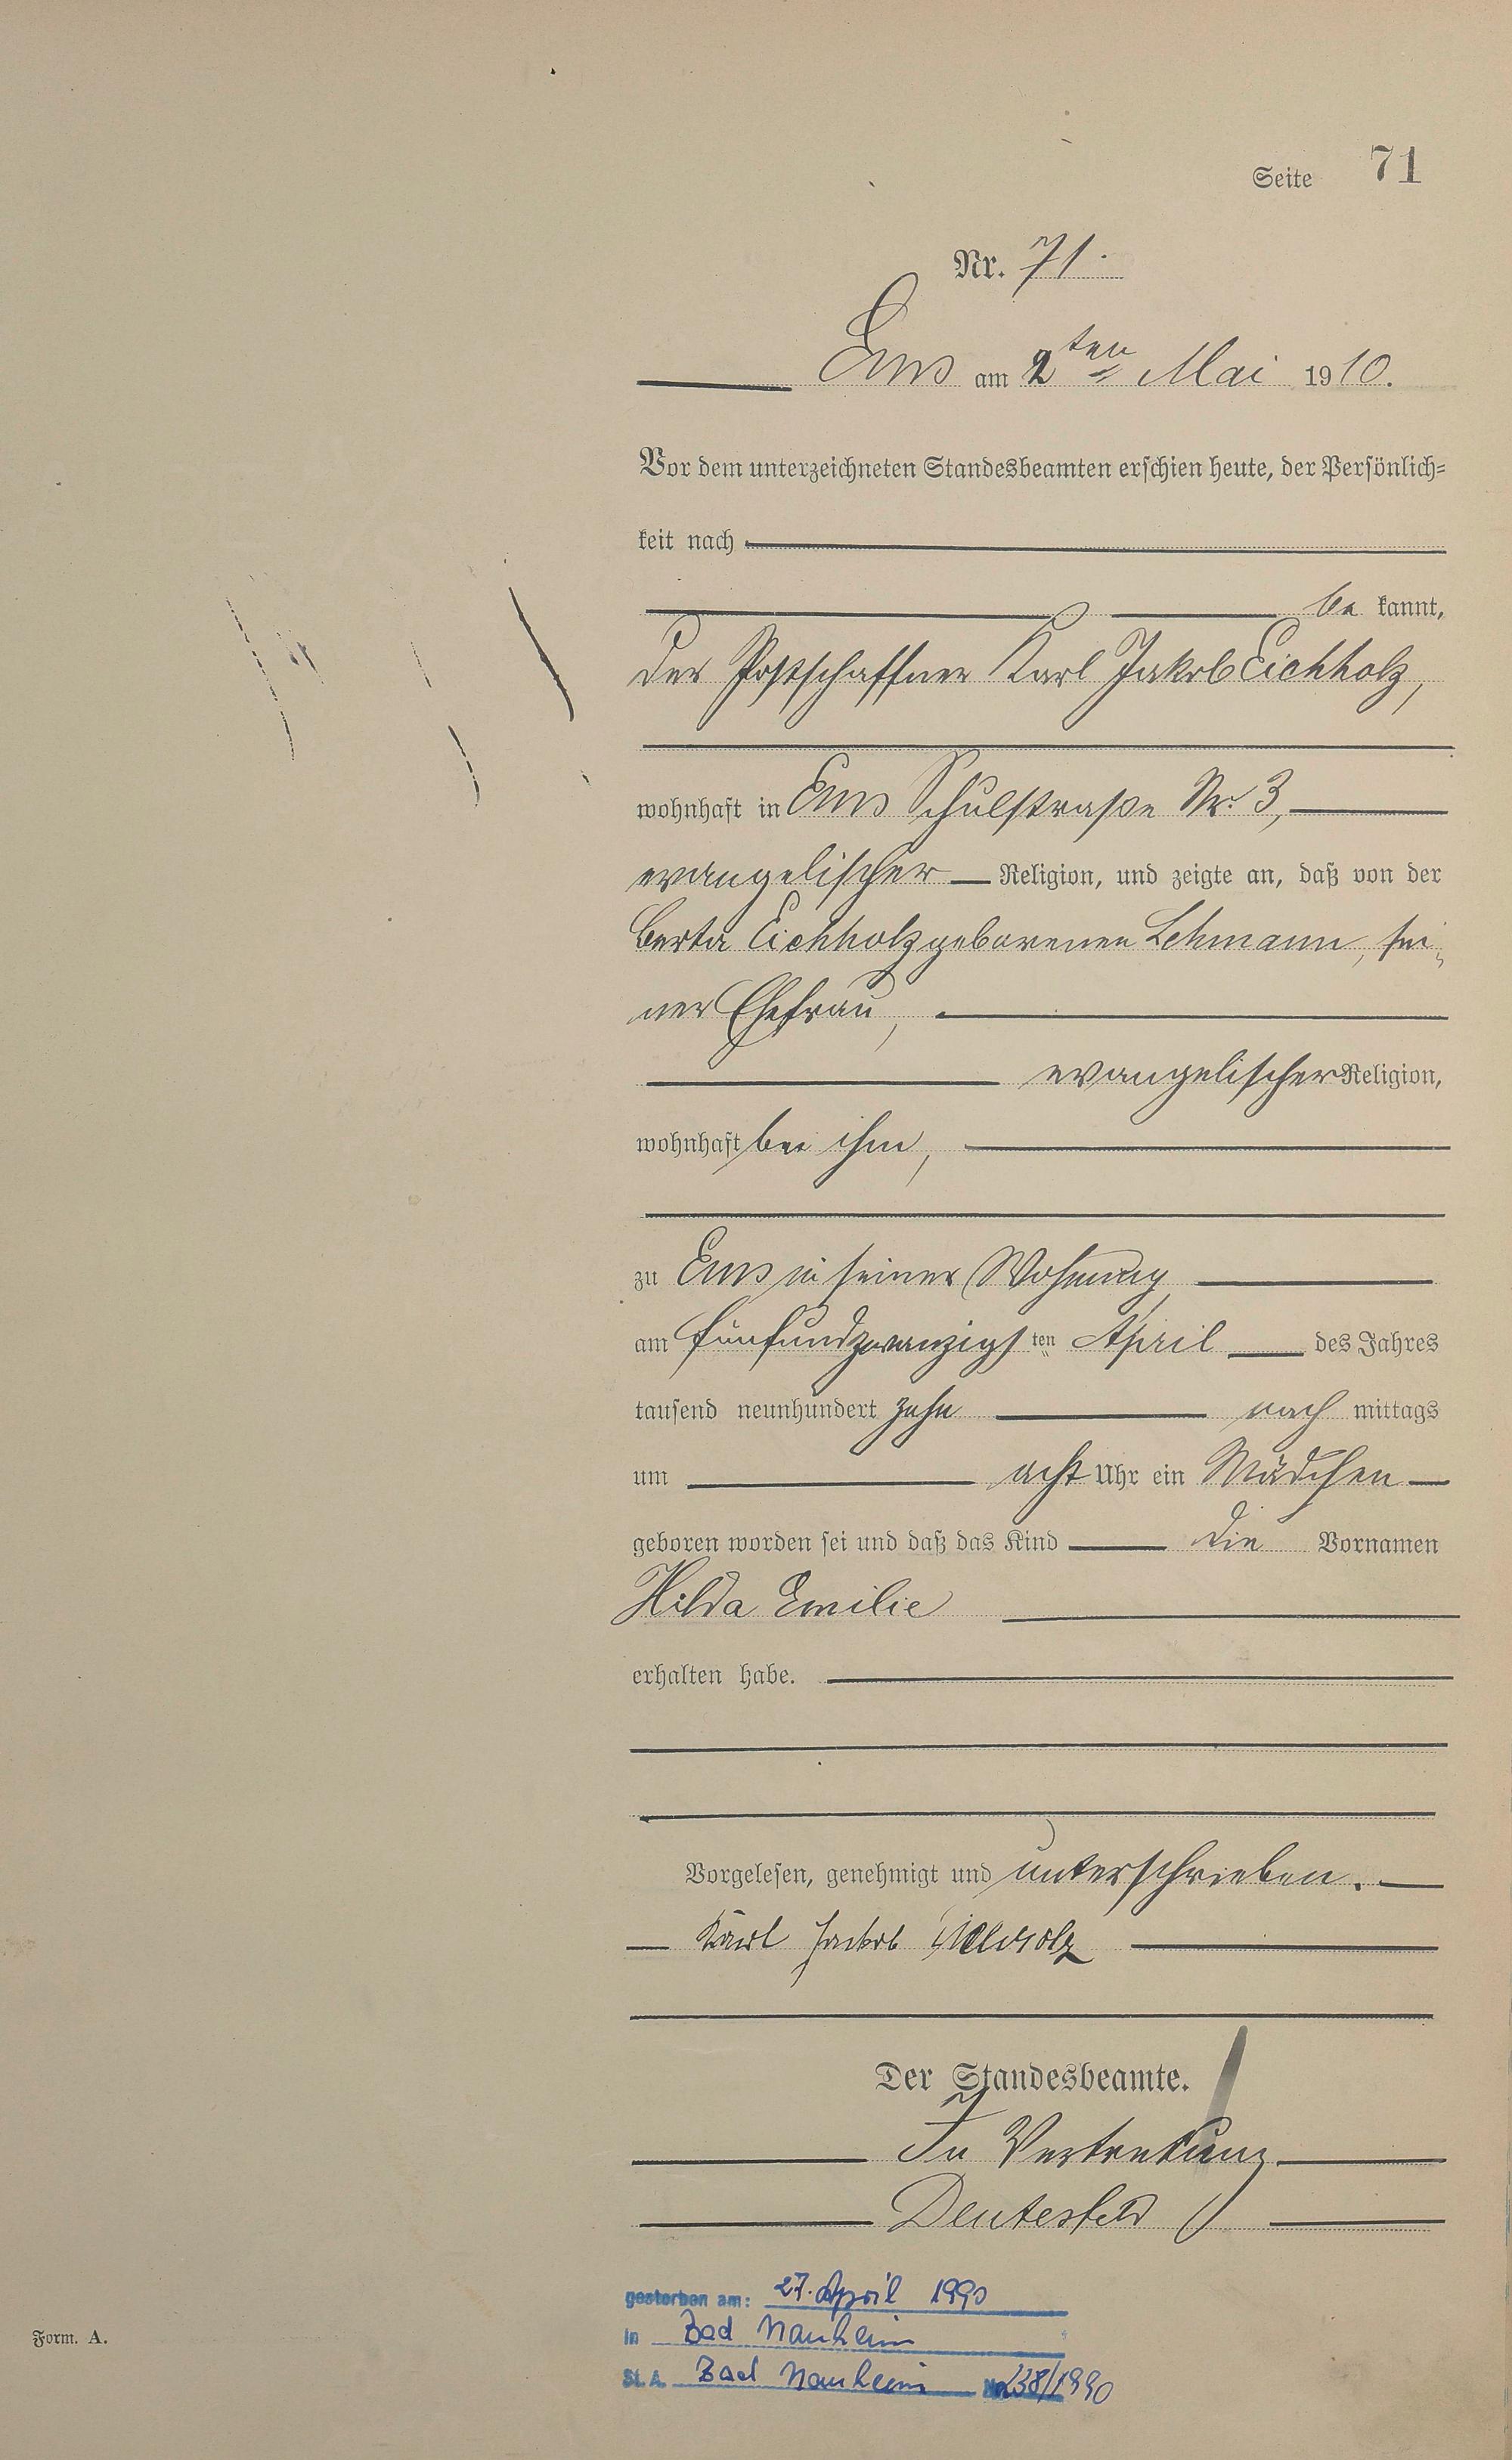 Seite 71
Nr. 71.
Ems am 2ten Mai 1910.
Vor dem unterzeichneten Standesbeamten erschien heute, der Persönlich=
keit nach
be kannt,
der Postschaffner Karl Jakob Eichholz,
wohnhaft in Ems Schulstraße Nr. 3,
evangelischer Religion, und zeigte an, daß von der
Berta Eichholz geborenen Lehmann, sei=
ner Ehefrau,
evangelischer Religion,
wohnhaft bei ihm,
zu Ems in seiner Wohnung
am fünfundzwanzigsten April des Jahres
tausend neunhundert zehn nach mittags
um acht Uhr ein Mädchen
geboren worden sei und daß das Kind die Vornamen
Hilda Emilie
erhalten habe.
Vorgelesen, genehmigt und unterschrieben.
Karl Jackob Eichholz
Der Standesbeamte.
In Vertretung
gestorben am: 27. April 1990
in Bad Nauheim
St. A. Bad Nauheim Nr. 238/1990
Form. A.